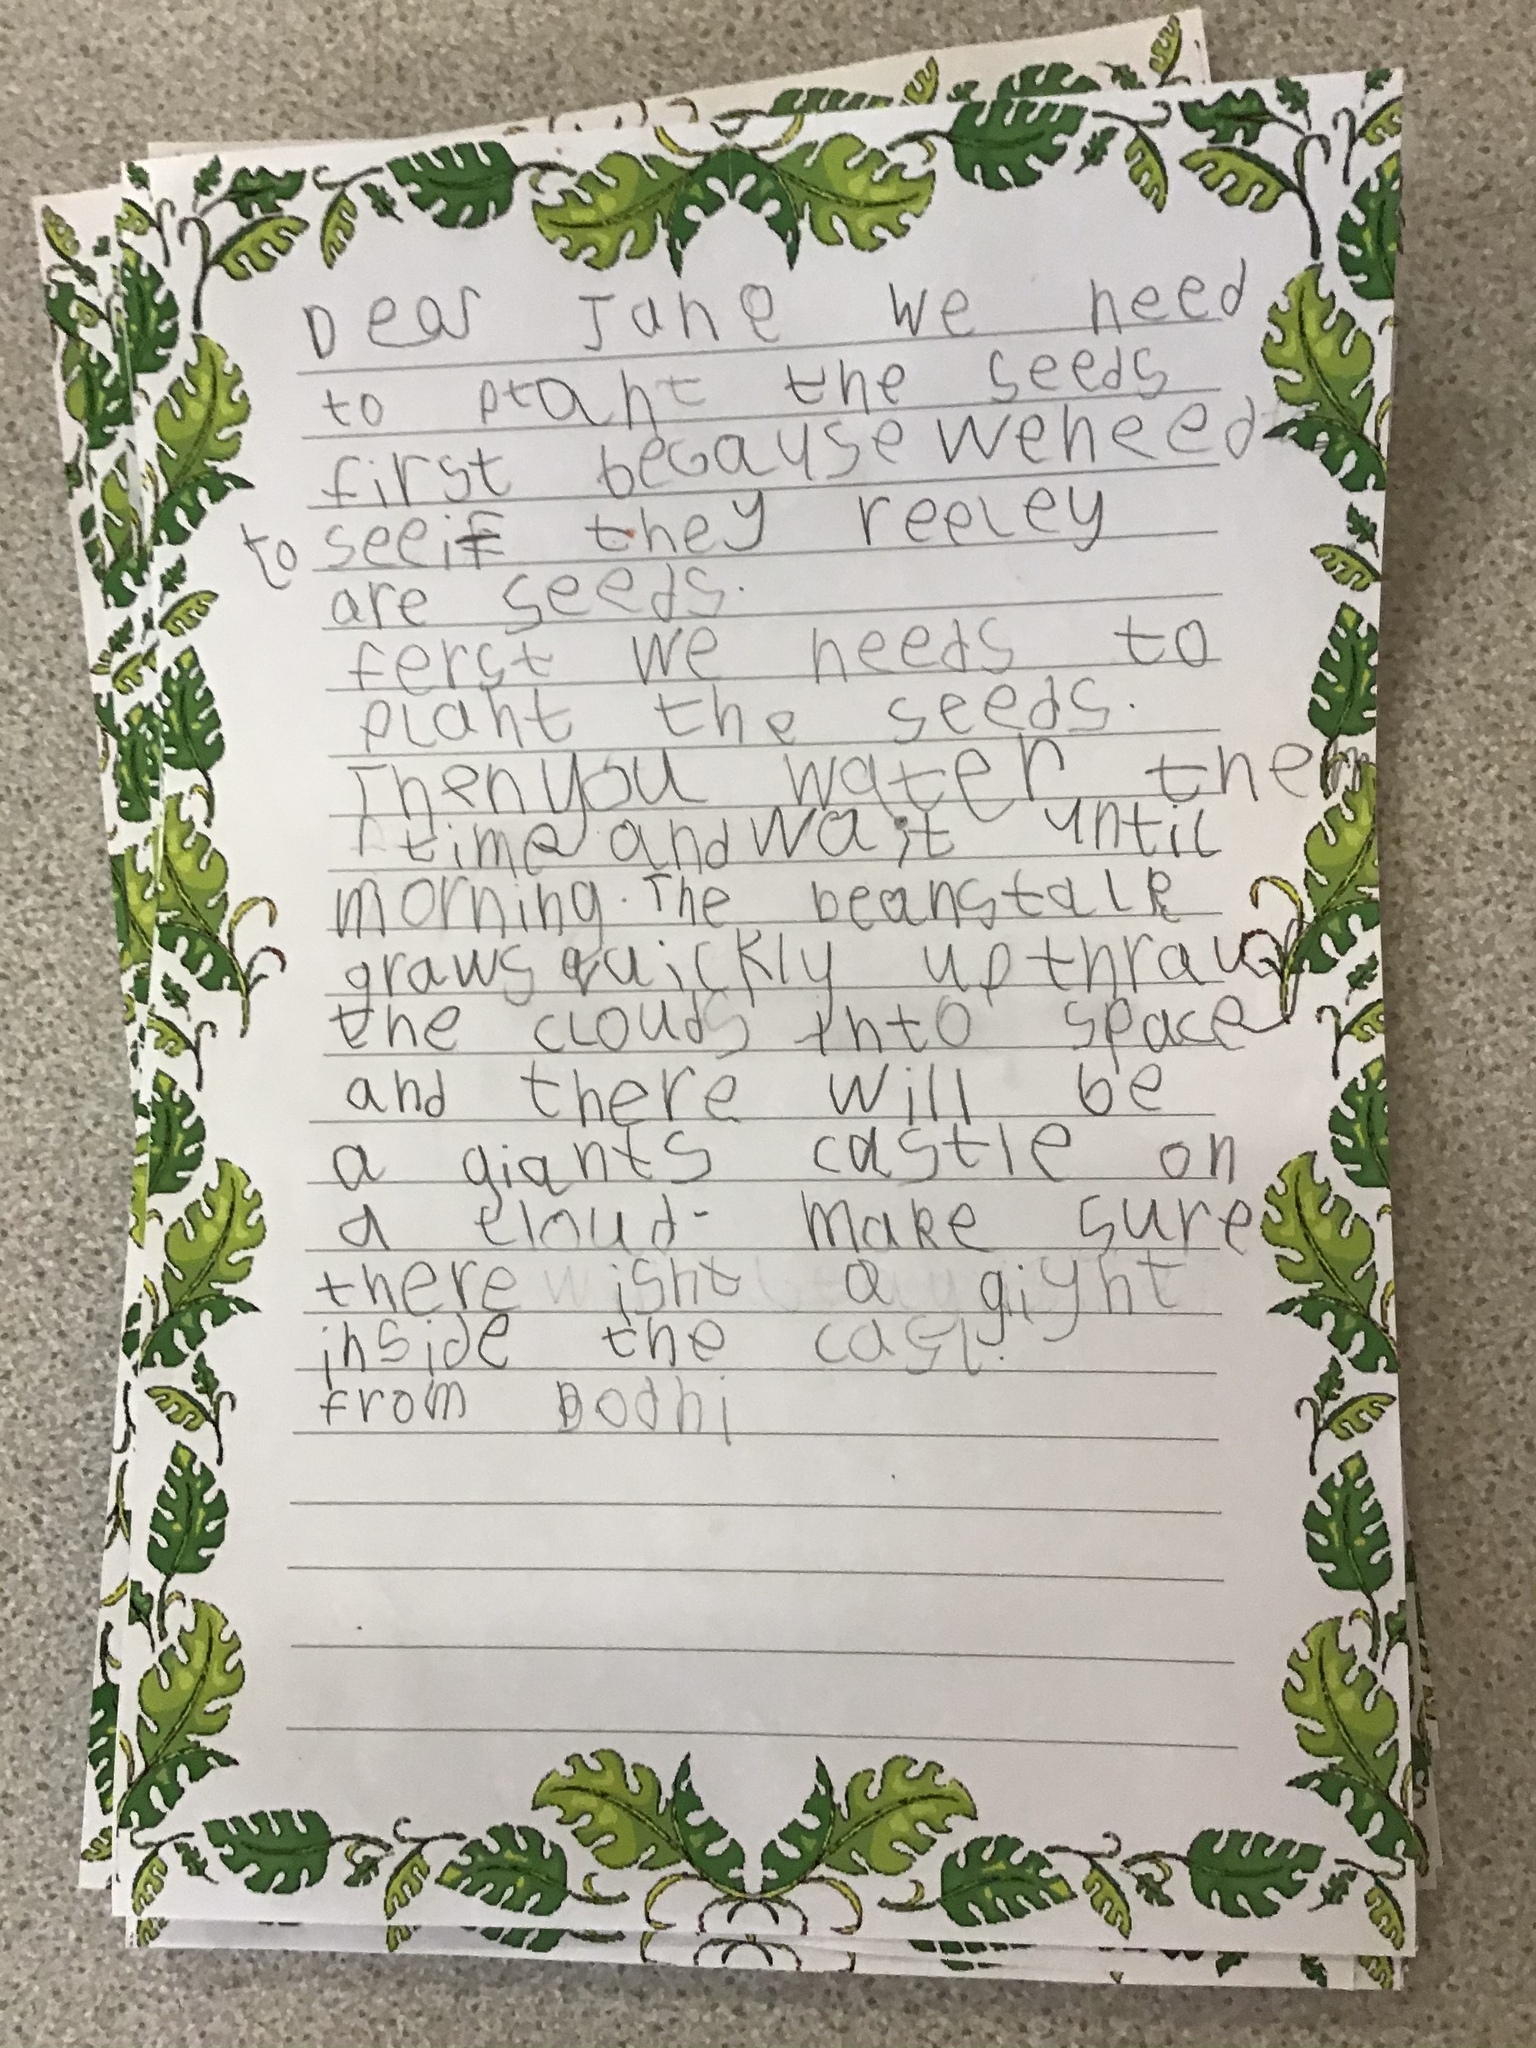 Dear Jane we need
to plant the seeds
first because we need
to see if they reeley
are seeds.
ferst we needs to
plant the seeds.
Then you water them
1 time and wait until
morning. The beanstalk
graws quickly up thrau
the clouds into space
and there will be
a giants castle on
a cloud. make sure
there isnt a giynt
inside the casl.
from Bodhi